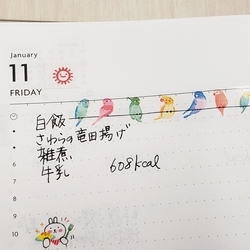 January
11
FRIDAY
白飯
さわらの竜田揚げ
雑煮
牛乳 608kcal
6
7
8
9
10